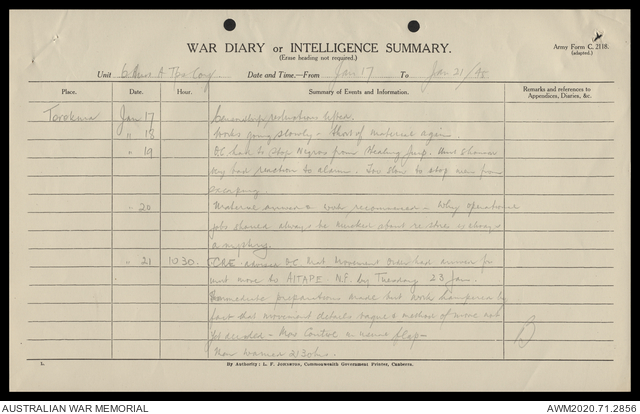 WAR DIARY or INTELLIGENCE SUMMARY.
(Erase heading not required.)
Army Form C. 2118.
(adapted.)
Unit 6 Aus A Tps Coy Date and Time.—From Jan 17 To Jan 21/45
Place. Date. Hour. Summary of Events and Information. Remarks and references to Appendices, Diaries, &c.
Torokina Jan 17 Censorship restrictions lifted.
" 18 Works going slowly - Short of material again.
" 19 OC had to stop Negros from stealing Jeep. Unit
very bad reaction to alarm. Too slow to stop man from
escaping.
" 20 Material arrives & work recommences - Why operational
jobs should always be
" 21 1030. CRE advises OC that Movement Order had arrived for
unit move to AITAPE N.G. by Tuesday 23 Jan.
Immediate preparations made but work hampered by
fact that movement details vague & method of move not
yet decided -
2130 hrs.
5.
By Authority: L. F. Johnston, Commonwealth Government Printer, Canberra.
AUSTRALIAN WAR MEMORIAL
AWM2020.71.2856